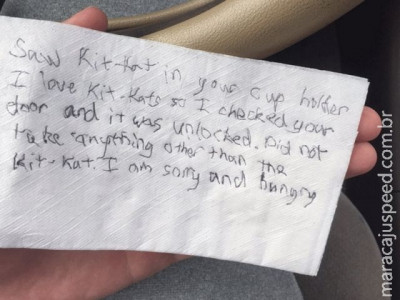 Saw Kit-Kat in your cup holder
I love Kit-Kats so I checked your
door and it was unlocked. Did not
take anything other than the
Kit-Kat. I am sorry and hungry
maracajuspeed.com.br